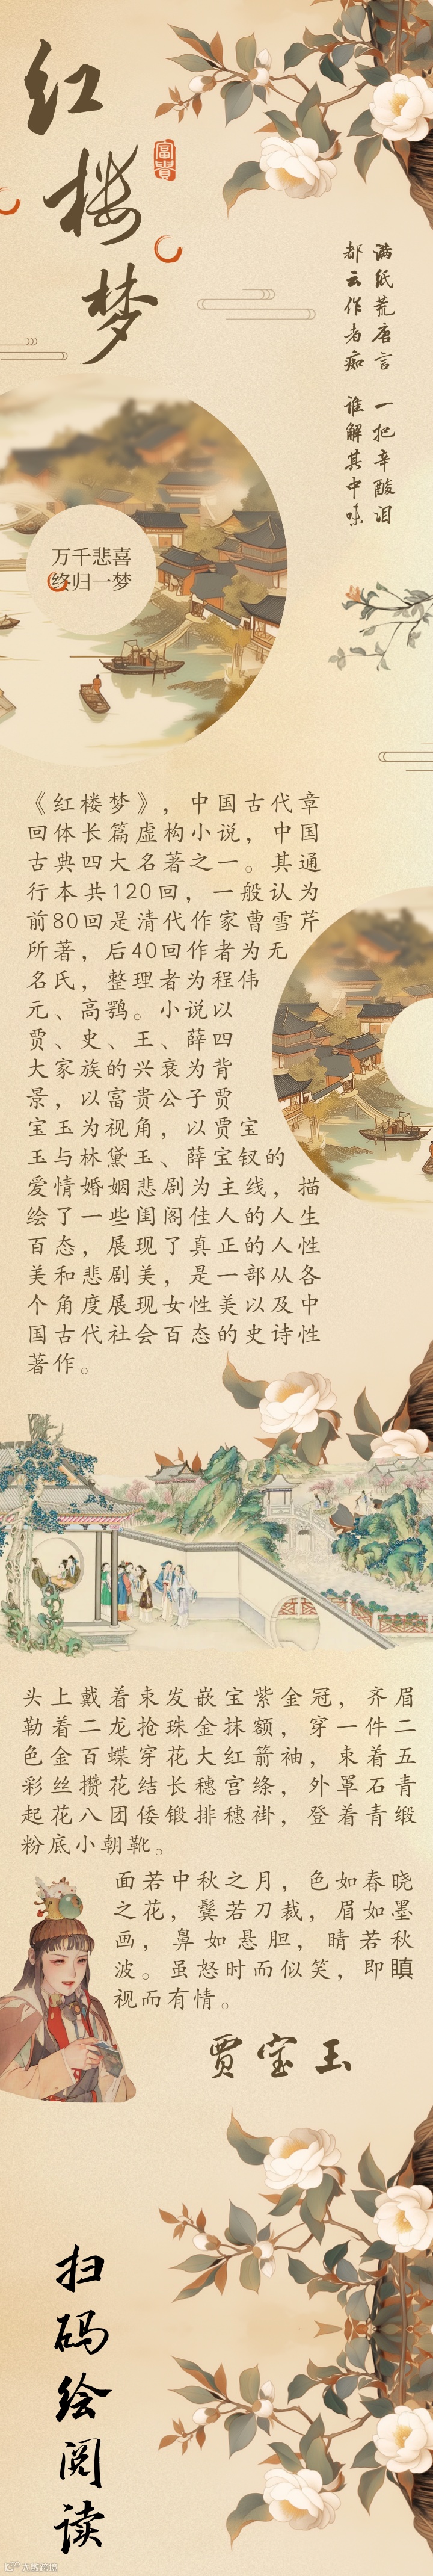 红楼梦
富贵
满纸荒唐言 一把辛酸泪
都云作者痴 谁解其中味
万千悲喜
终归一梦
《红楼梦》，中国古代章
回体长篇虚构小说，中国
古典四大名著之一。其通
行本共120回，一般认为
前80回是清代作家曹雪芹
所著，后40回作者为无
名氏，整理者为程伟
元、高鹗。小说以
贾、史、王、薛四
大家族的兴衰为背
景，以富贵公子贾
宝玉为视角，以贾宝
玉与林黛玉、薛宝钗的
爱情婚姻悲剧为主线，描
绘了一些闺阁佳人的人生
百态，展现了真正的人性
美和悲剧美，是一部从各
个角度展现女性美以及中
国古代社会百态的史诗性
著作。
头上戴着束发嵌宝紫金冠，齐眉
勒着二龙抢珠金抹额，穿一件二
色金百蝶穿花大红箭袖，束着五
彩丝攒花结长穗宫绦，外罩石青
起花八团倭锻排穗褂，登着青缎
粉底小朝靴。
面若中秋之月，色如春晓
之花，鬓若刀裁，眉如墨
画，鼻如悬胆，睛若秋
波。虽怒时而似笑，即瞋
视而有情。
贾宝玉
扫码绘阅读